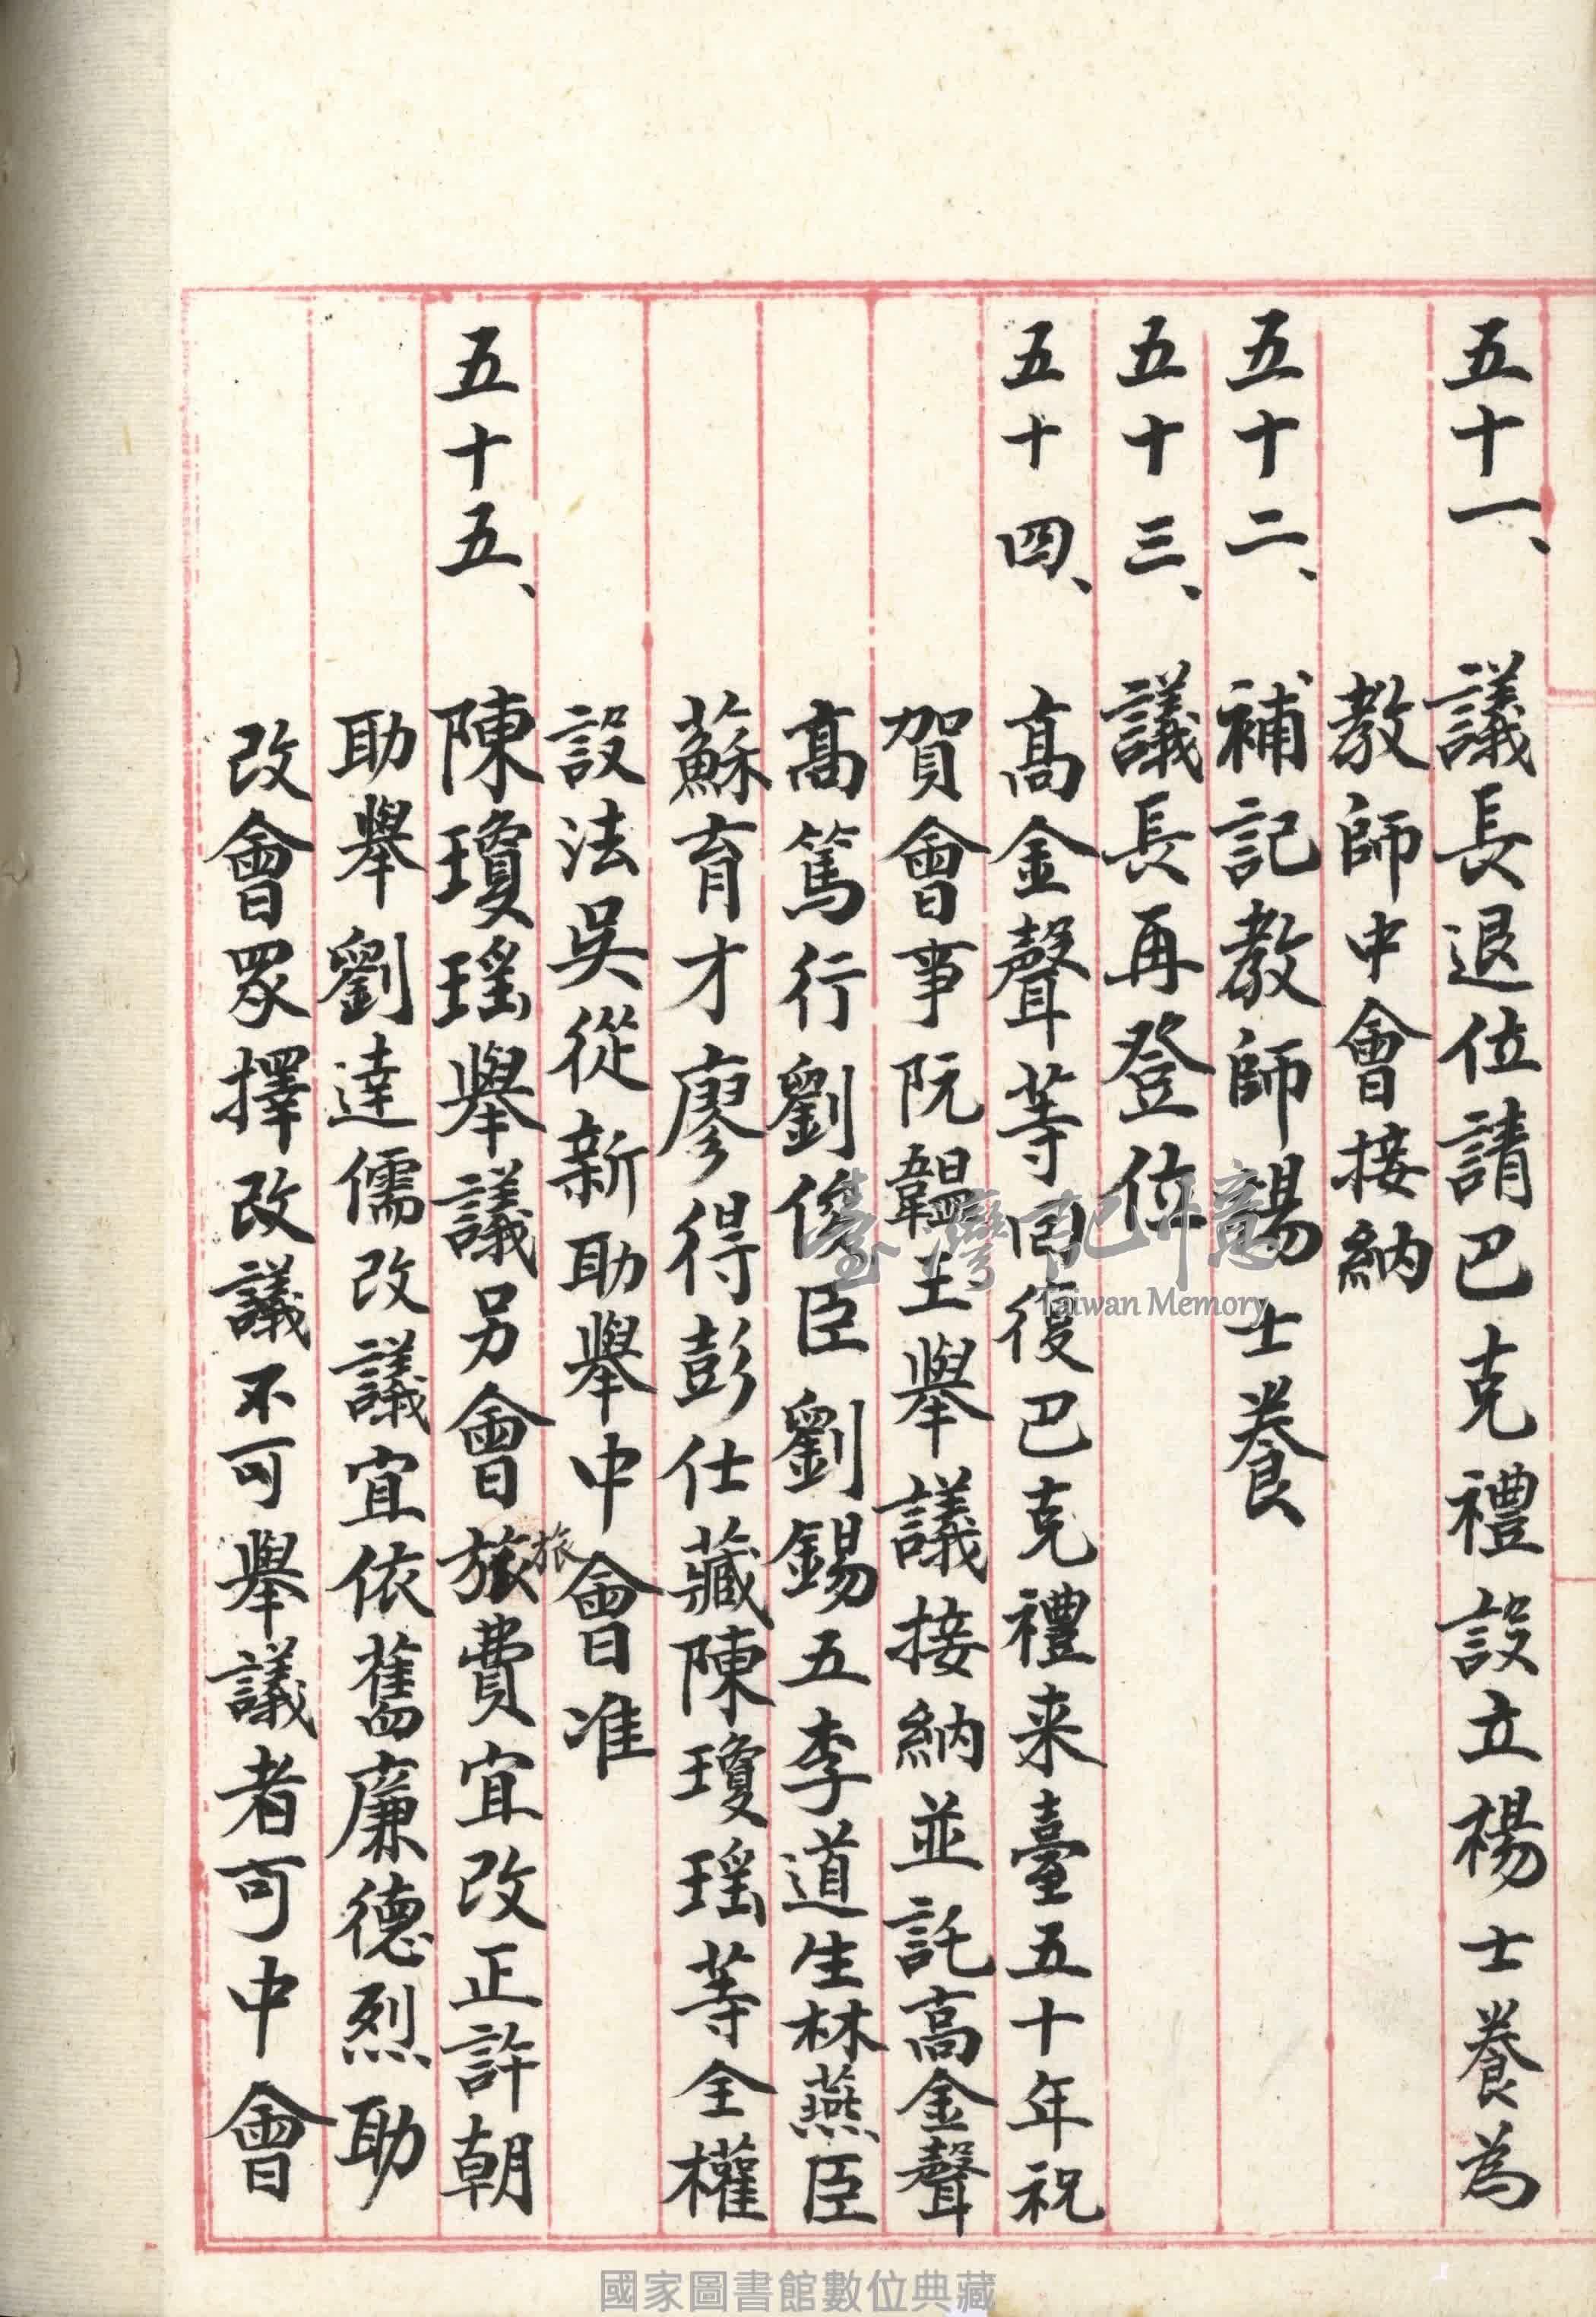 五十一、議長退位請巴克禮設立楊士養為
教師中會接納
五十二、補記教師楊士養
五十三、議長再登位
五十四、高金聲等回復巴克禮来臺五十年祝
賀會事阮韞玉舉議接納並託高金聲
高篤行劉俊臣劉錫五李道生林燕臣
蘇育才廖得彭仕藏陳瓊瑤等全權
設法吳從新助舉中會准
五十五、陳瓊瑤舉議另會旅費宜改正許朝
旅
助舉劉達儒改議宜依舊廉德烈助
改會眾擇改議不可舉議者可中會
臺灣記憶
Taiwan Memory
國家圖書館數位典藏